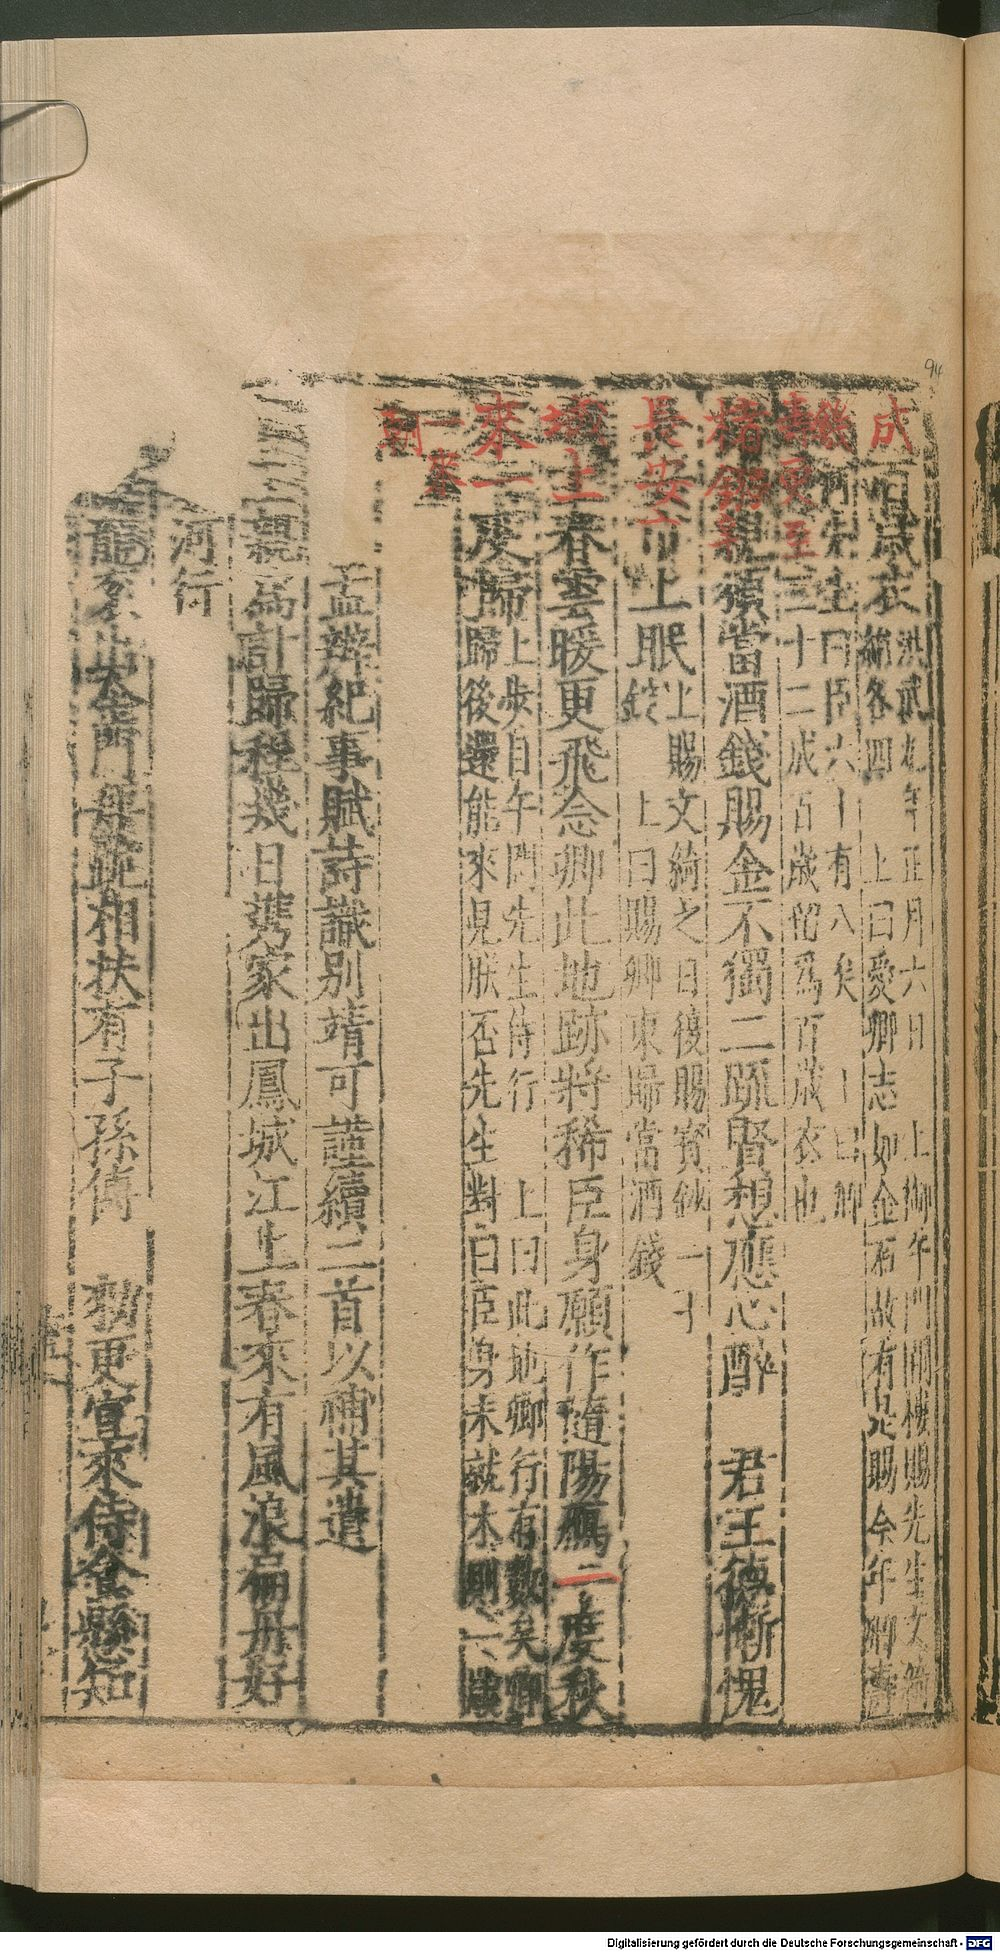 94
成百歲衣
洪武九年正月六日 上御午門闕樓賜先生文綺
綿各四 上曰愛卿志如金石故有是賜今年卿壽
幾何先生曰臣六十有八矣 上曰卿
壽更至三十二成百歲留爲百歲衣也
楮鏹新親須當酒錢賜金不獨二踈督想應心醉 君王德慚愧
長安市上眠
上賜文綺之日復賜寳鈔一
錠 上曰賜卿東歸當酒錢
城上春雲暖更飛念卿此地跡將稀臣身願作隨陽鴈一度秋
來一度歸
上步自午門先生侍行 上曰此地卿行有數矣卿
歸後還能來見朕否先生對曰臣身未就木則一歲
一來
朝
孟辨紀事賦詩識別靖可謹續二首以補其遺
親爲計歸程幾日攜家出鳳城江上春來有風浪扁舟好
河行
龍 出金門 跪相扶有子孫傳 勑更宣來侍食懸知
Digitalisierung gefördert durch die Deutsche Forschungsgemeinschaft - DFG